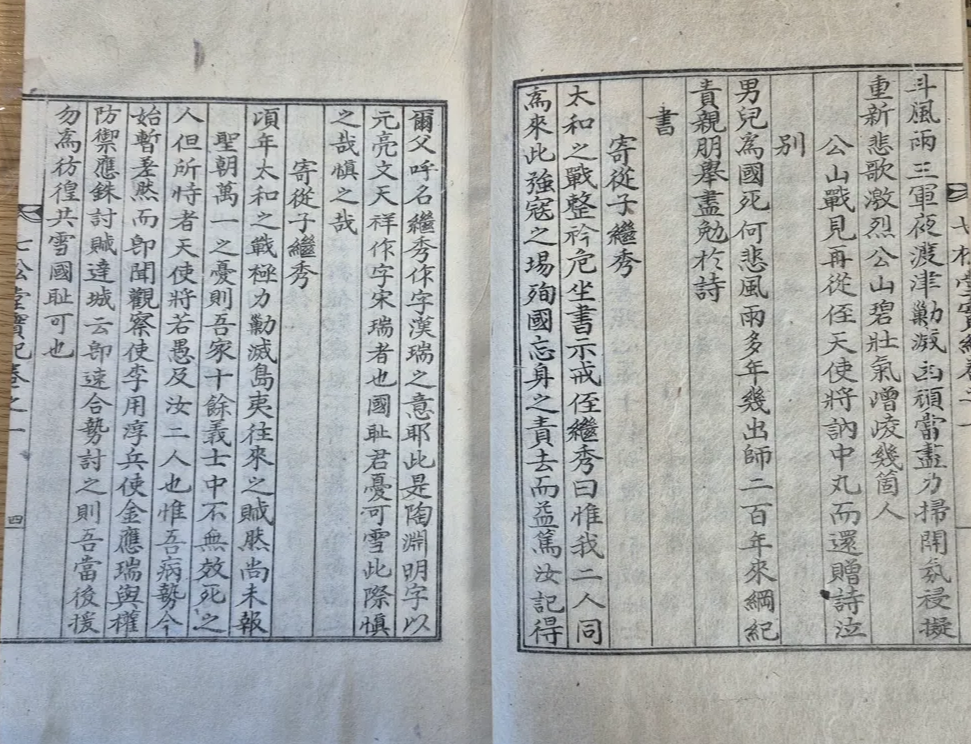 斗風兩三軍夜渡津勦滅 頑當盡力掃開氛祲擬
重新悲歌激烈公山碧壯氣噌崚幾箇人
公山戰見再從侄天使將訥中丸而還贈詩泣
別
男兒爲國死何悲風雨多年幾出師二百年來綱紀
責親朋擧盡勉於詩
書
寄從子繼秀
太和之戰整衿危坐書示戒侄繼秀曰惟我二人同
爲來此強寇之場殉國忘身之責去而益篤汝記得
爾父呼名繼秀作字漢瑞之意耶此是陶淵明字以
元亮文天祥作字宋瑞者也國耻君憂可雪此際愼
之哉愼之哉
寄從子繼秀
頃年太和之戰極力勦滅島夷往來之賊然尚未報
聖朝萬一之憂則吾家十餘義士中不無效死之
人但所恃者天使將若愚及汝二人也惟吾病勢今
始暫差然而卽聞觀察使李用淳兵使金應瑞與權
防禦應銖討賊達城云卽速合勢討之則吾當後援
勿爲彷徨共雪國耻可也
七松堂實紀卷之一
四